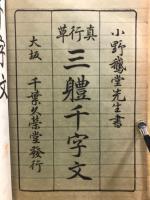 小野鵞堂先生書
真行草
三體千字文
大坂 千葉久榮堂發行
字文